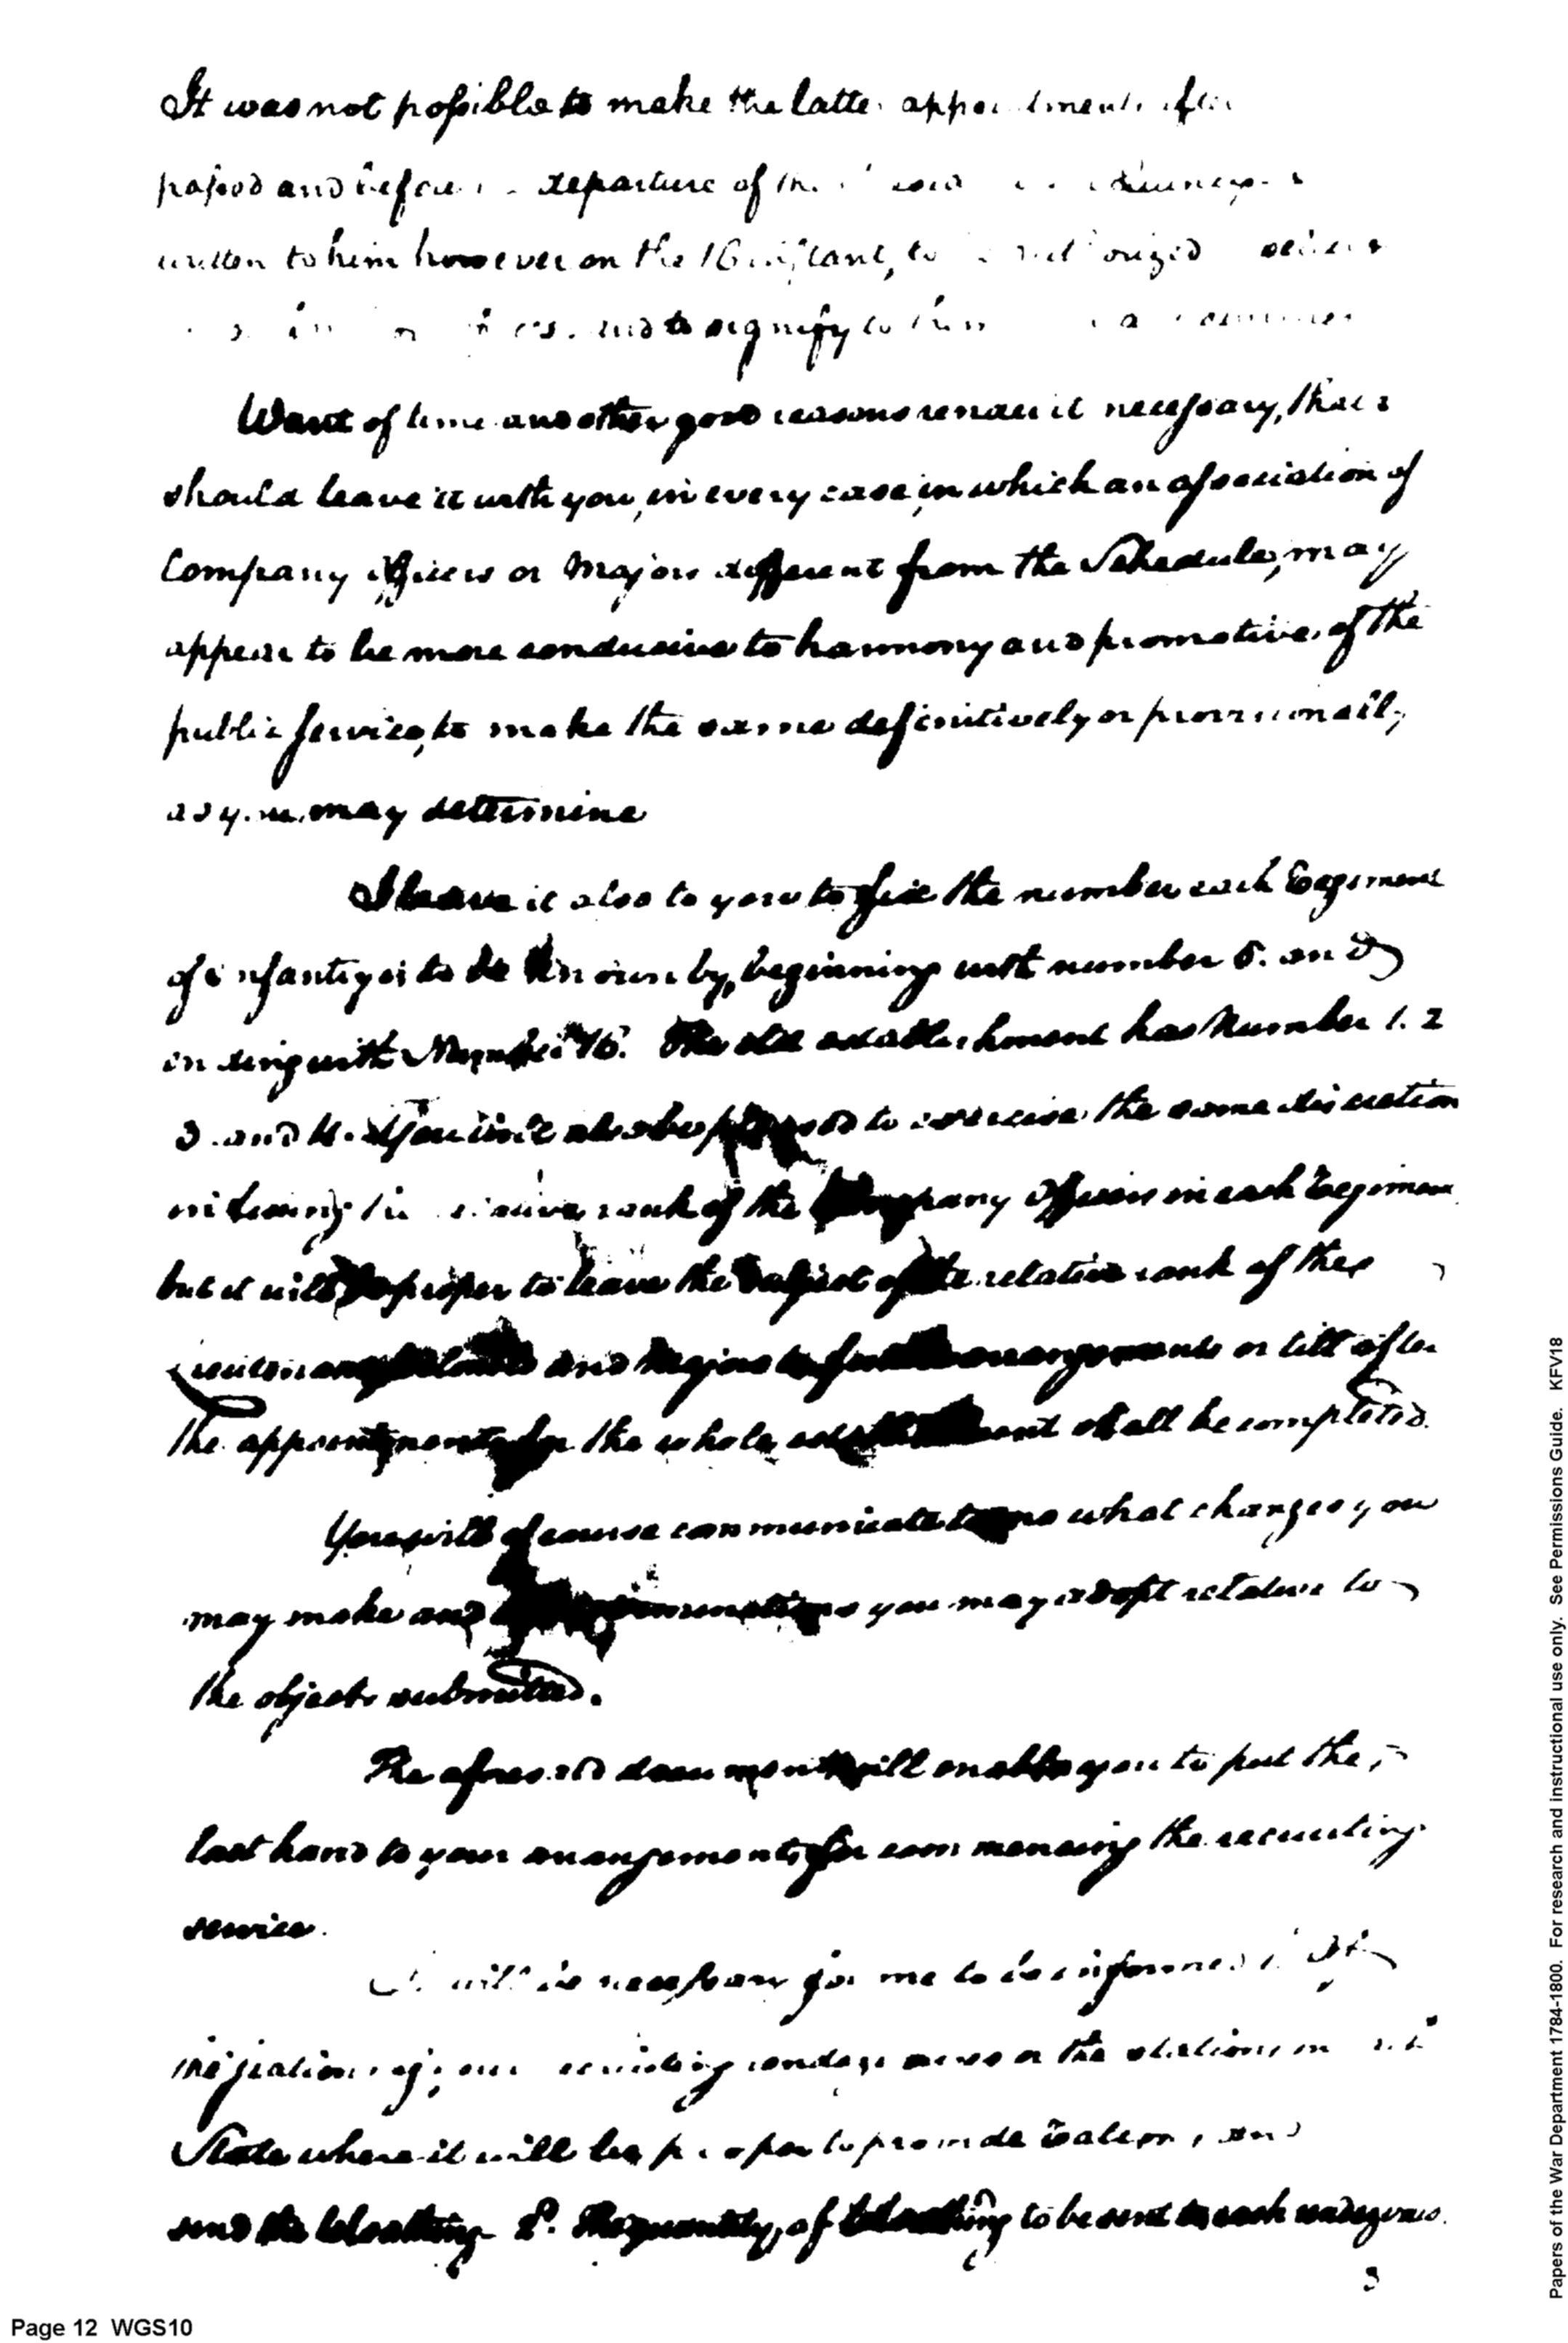 It was not possible to make the latter appointments after
passed and before departure of the
written to him however on the 16 instant, to
and to signify to them
Want of time and other good reasons render it necessary, that I
should leave it with you, in every case, in which an association of
Company officers or Majors different from the Schedule, may
appear to be more conducive to harmony and promotive of the
public service, to make the same definitively or provisionally
as you may determine
I leave it also to you to fix the number each Regiment
of infantry is to be known by, beginning with number 5. and
ending with Number 16. The old establishment has Number 1. 2
3. and 4. You will also be pleased to exercise the same discretion
in fixing the relative rank of the Company Officers in each Regiment
but it will be proper to leave the subject of the relative rank of the
and Majors to further arrangements or till after
the appointments for the whole establishment shall be completed.
You will of course communicate to me what changes you
may make and determinations you may adopt relative to
the objects submitted.
The aforesaid document will enable you to put the
last hand to your arrangements for commencing the recruiting
service.
It will be necessary for me to be informed
of your recruiting rendezvouses or the stations in
State where it will be proper to provide Rations, and
send the Cloathing &c. The quantity, of Cloathing to be sent to each rendezvous.
Page 12 WGS10
Papers of the War Department 1784-1800. For research and instructional use only. See Permissions Guide. KFV18